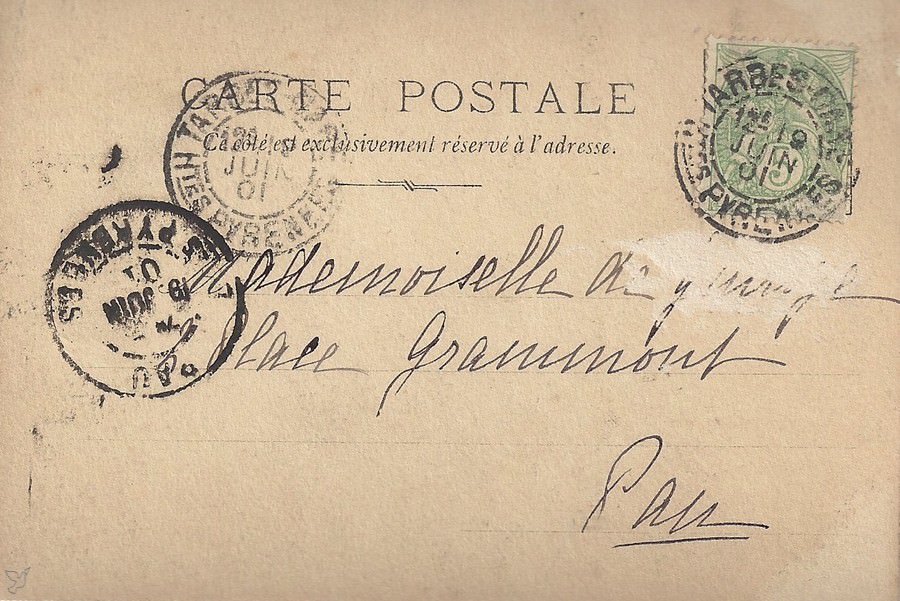 CARTE POSTALE
Ce côté est exclusivement réservé à l'adresse.
TARBES-GARE
12 19
JUIN
01
HTES PYRENEES
TARBES-GARE
19
JUIN
01
HTES PYRENEES
5
PAU
19 JUIN
01
PYRENEES
Mademoiselle de
Place Grammont
Pau